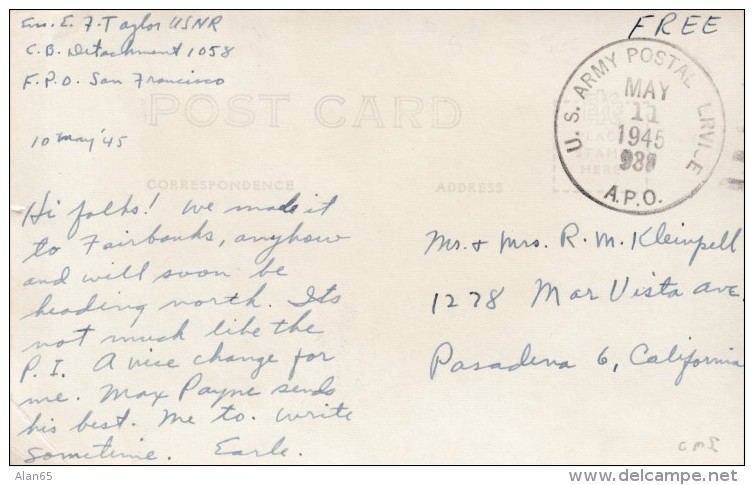 Ens. E. F. Taylor USNR
C.B. Detachment 1058
F.P.O. San Francisco
10 May '45
FREE
POST CARD
U.S. ARMY POSTAL SERVICE
MAY
11
1945
A.P.O.
PLACE
STAMP
HERE
CORRESPONDENCE
ADDRESS
Hi folks! We made it
to Fairbanks, anyhow
and will soon be
heading north. Its
not much like the
P.I. A nice change for
me. Max Payne sends
his best. Me to. Write
sometime. Earle.
Mr. & Mrs. R. M. Kleinpell
1278 Mar Vista Ave.
Pasadena 6, California
Alan65
www.delcampe.net